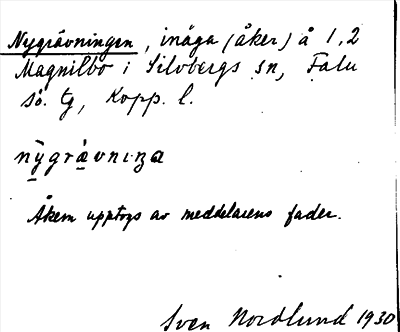 Nygrävningen, inäga (åker) å 1,2
Magnilbo i Silvbergs sn, Falu
sö. tg, Kopp. l.
nygrävniŋa
Åkern upptogs av meddelarens fader.
Sven Nordlund 1930